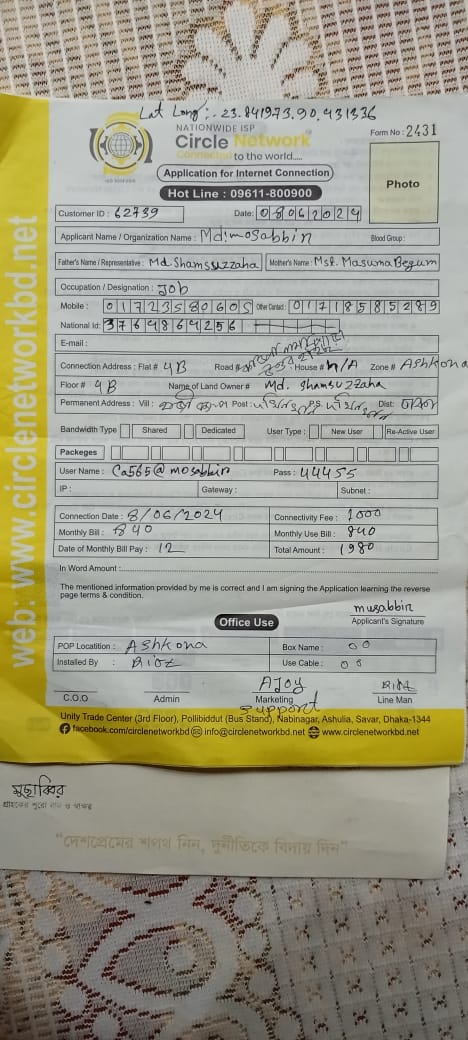 Lat Long:- 23.841973,90.431336
NATIONWIDE ISP
Form No : 2431
Circle Network
Connected to the world.....
Application for Internet Connection
Photo
Hot Line : 09611-800900
Customer ID : 62739 Date: 08062024
Applicant Name / Organization Name : Md: mosabbin Blood Group :
Father's Name / Representative : Md. Shamsuzzaha Mother's Name : Mst. Masuma Begum
Occupation / Designation : Job
Mobile : 01723580605 Other Contact : 01718585289
National Id: 3764864256
E-mail :
Connection Address : Flat # 4B Road # House # N/A Zone # Ashkona
Floor # 4B Name of Land Owner # Md. Shamsuzzaha
Permanent Address : Vill : Post : P.S: Dist: ঢাকা
Bandwidth Type Shared Dedicated User Type : New User Re-Active User
Packeges
User Name : Ca565@mosabbin Pass : 44455
IP : Gateway : Subnet :
Connection Date : 8/06/2024 Connectivity Fee : 1000
Monthly Bill : 840 Monthly Use Bill : 840
Date of Monthly Bill Pay : 12 Total Amount : 1980
In Word Amount :
The mentioned information provided by me is correct and I am signing the Application learning the reverse
page terms & condition.
musabbir
Office Use Applicant's Signature
POP Locatition : Ashkona Box Name : 00
Installed By : Use Cable : 00
AJOY
C.O.O Admin Marketing Line Man
support
Unity Trade Center (3rd Floor), Pollibiddut (Bus Stand), Nabinagar, Ashulia, Savar, Dhaka-1344
facebook.com/circlenetworkbd info@circlenetworkbd.net www.circlenetworkbd.net
web: www.circlenetworkbd.net
মুছাব্বির
গ্রাহকের পুরো নাম ও স্বাক্ষর
"দেশপ্রেমের শপথ নিন, দুর্নীতিকে বিদায় দিন"